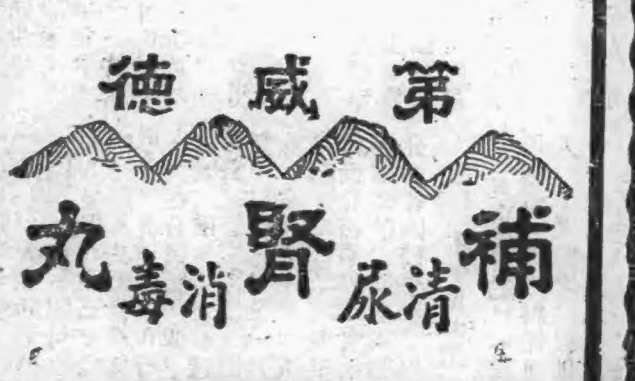 第威德
補腎丸
清尿
消毒